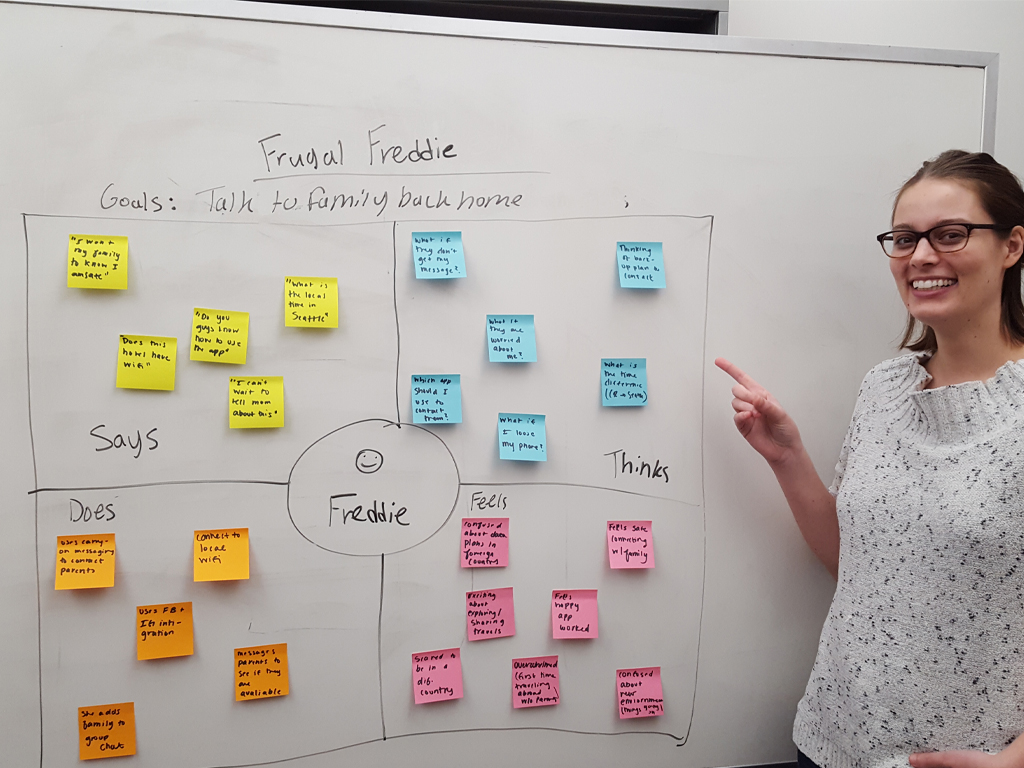 Frugal Freddie
Goals: Talk to family back home
"I want
my family
to know I
amsafe"
"What is
the local
time in
Seattle"
"Do you
guys know
how to use
the app"
"Does this
hotel have
wifi"
"I can't
wait to
tell mom
about this"
Says
What if
they don't
get my
message?
Thinking
of back-
up plan to
contact
What if
they are
worried
about
me?
Which app
should I
use to
contact
them?
What is
the time
What if
I loose
my phone?
Thinks
Freddie
Does
uses carry-
on messaging
to contact
parents
connect to
local
wifi
uses FB +
IG inte-
gration
messages
parents to
see if they
are
avaliable
She adds
family to
group
chat
Feels
confused
about data
plans in
foreign
country
Feels safe
connecting
w/family
Exciting
about
exploring/
sharing
travels
Feels
happy
app
worked
Scared to
be in a
dif.
country
overwhelmed
(first time
traveling
abroad
w/o family)
confused
about
new
enviornment